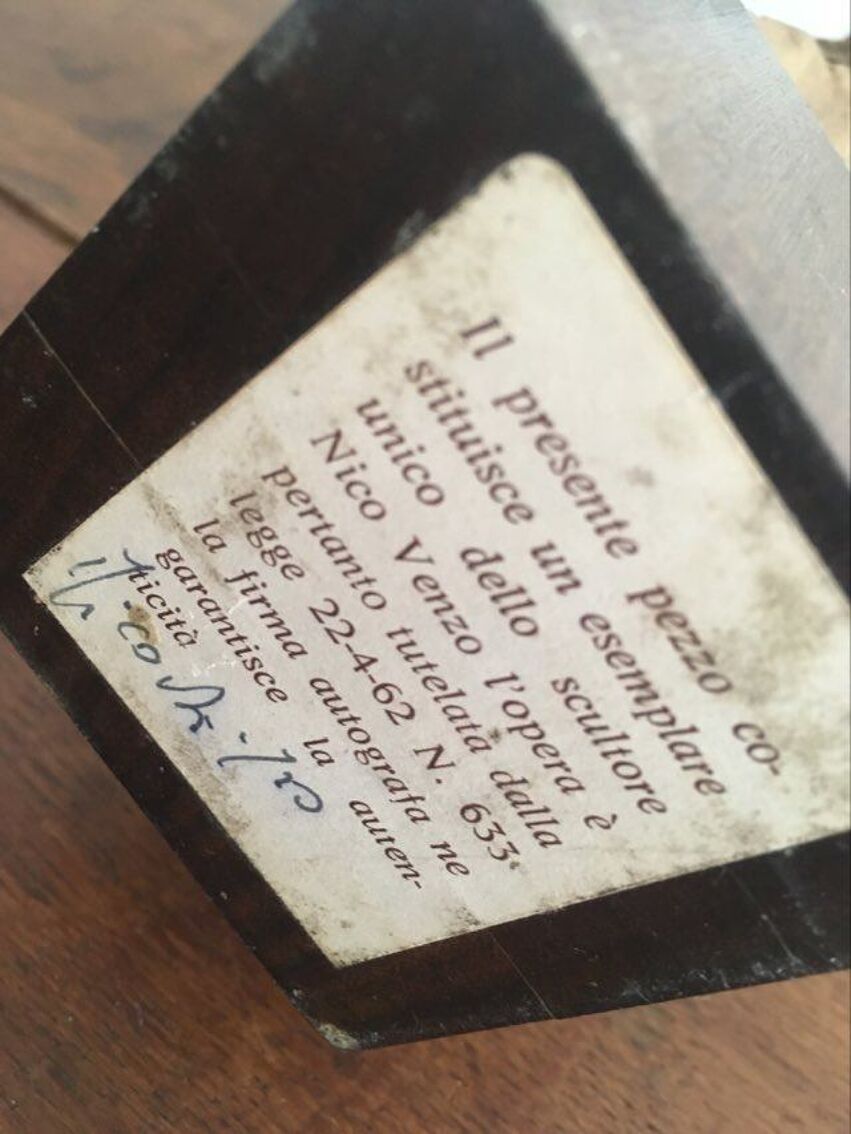 Il presente pezzo co-
stituisce un esemplare
unico dello scultore
Nico Venzo l'opera è
pertanto tutelata dalla
legge 22-4-62 N. 633
la firma autografa ne
garantisce la auten-
ticità